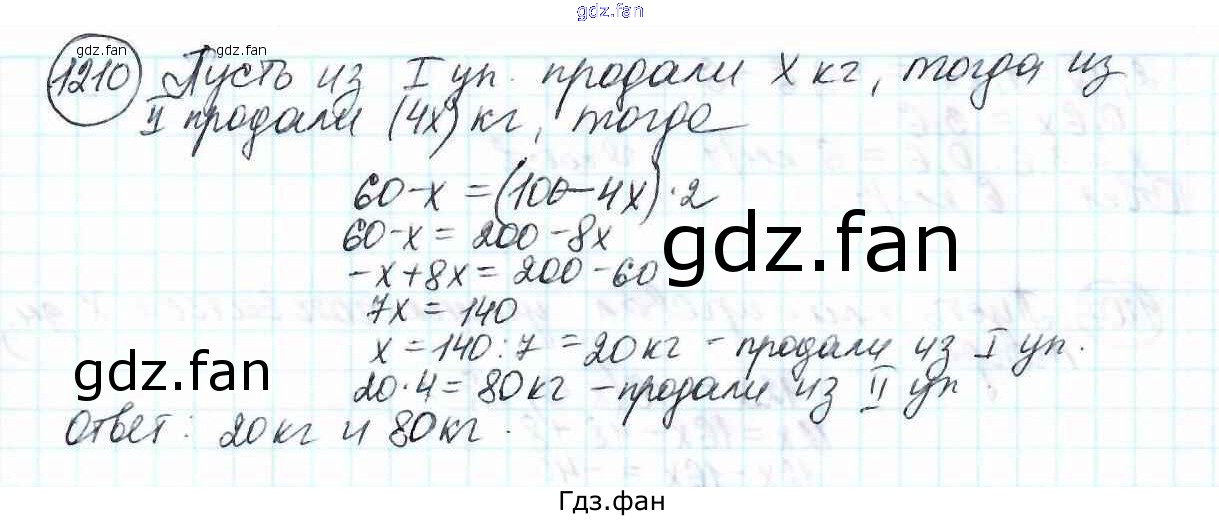 gdz.fan
gdz.fan
1210 Пусть из I уп. продали x кг, тогда из
II продали (4x) кг, тогда
60-x=(100-4x)·2
60-x=200-8x
gdz.fan
-x+8x=200-60
7x=140
x=140:7=20кг - продали из I уп.
gdz.fan
20·4=80кг - продали из II уп.
Ответ: 20кг и 80кг.
Гдз.фан